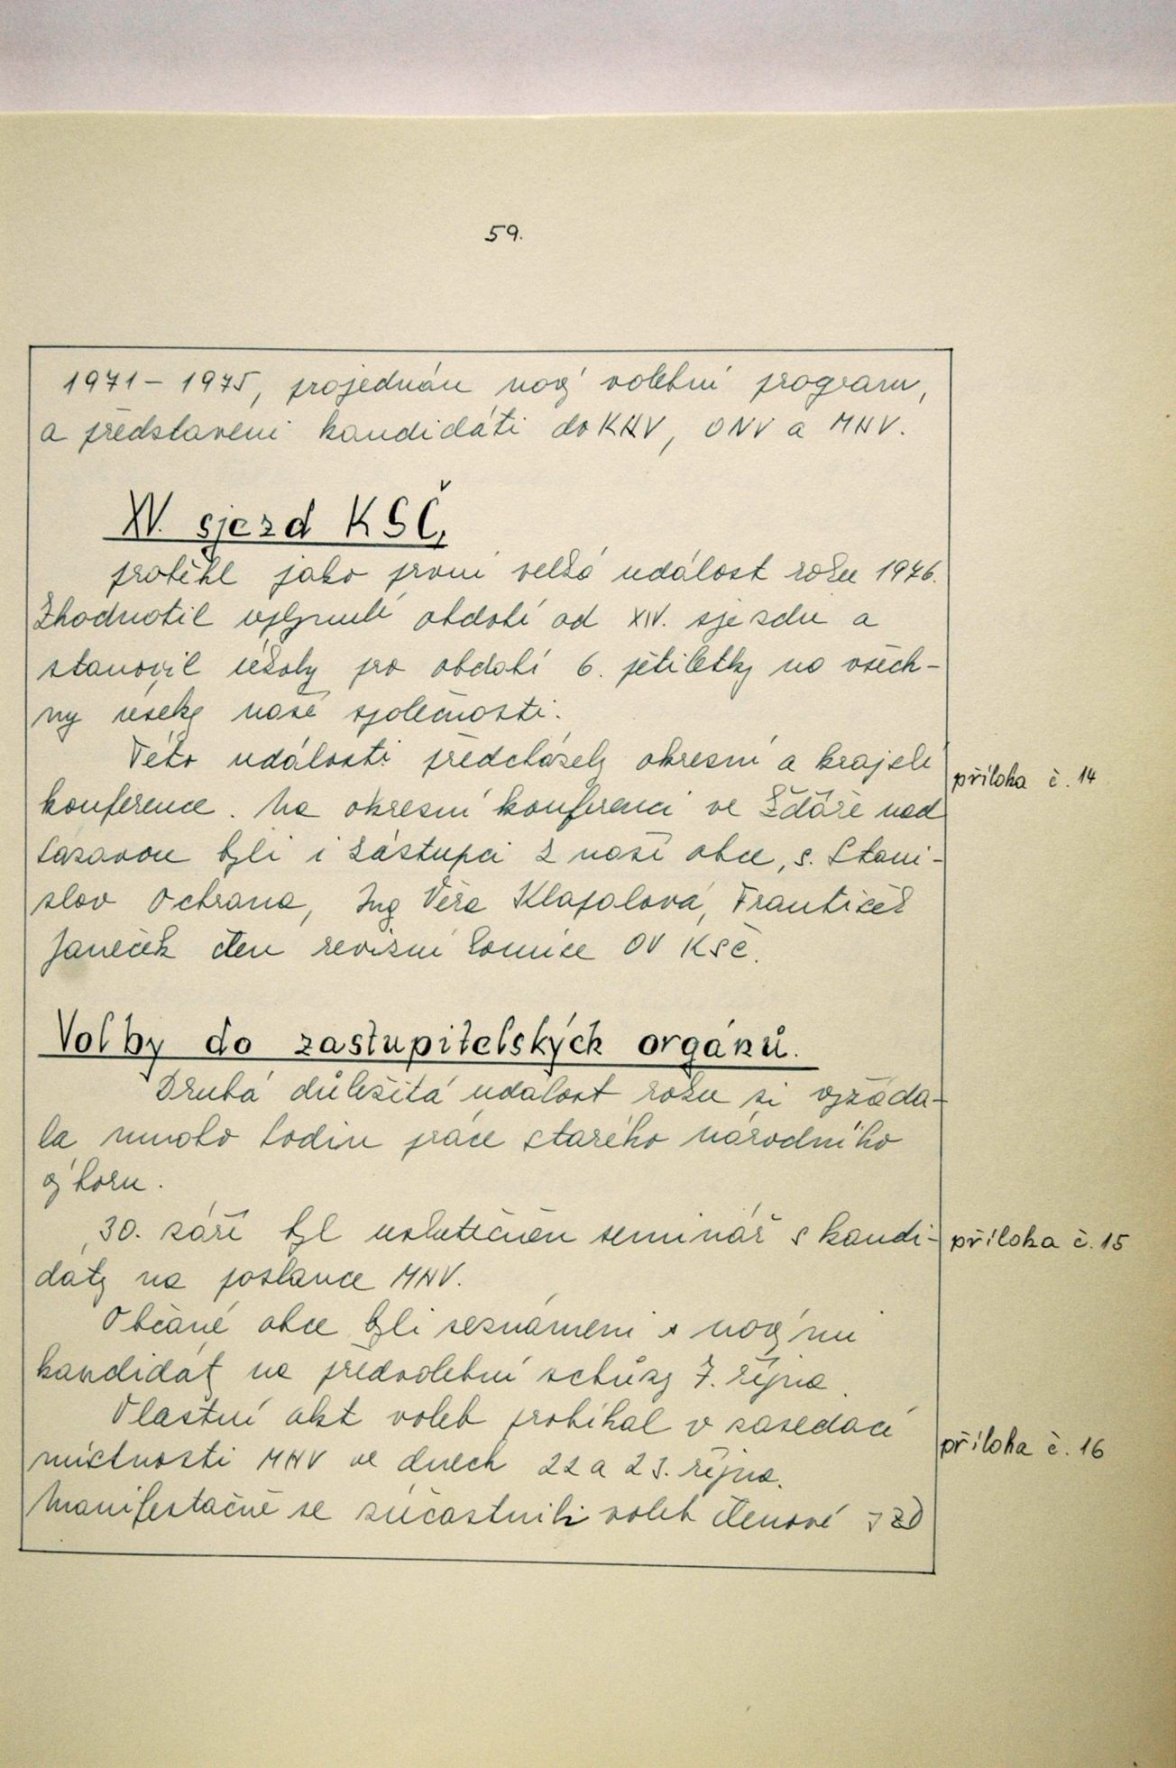 59.
1971 – 1975, projednán nový volební program,
a představeni kandidáti do KNV, ONV a MNV.
XV. sjezd KSČ,
proběhl jako první velká událost roku 1976.
Zhodnotil uplynulé období od XIV. sjezdu a
stanovil úkoly pro období 6. pětiletky na všech-
ny úseky naší společnosti.
Této události předcházely okresní a krajské
příloha č. 14
konference. Na okresní konferenci ve Žďáře nad
Sázavou byli i zástupci z naší obce, s. Stani-
slav Ochrana, Ing Věra Klapalová, František
Janeček člen revizní komise OV KSČ.
Volby do zastupitelských orgánů.
Druhá důležitá událost roku si vyžáda-
la mnoho hodin práce starého národního
výboru.
30. září byl uskutečněn seminář s kandi-
příloha č. 15
dáty na poslance MNV.
Občané obce byli seznámeni s novými
kandidáty na předvolební schůzy 7. října.
Vlastní akt voleb probíhal v zasedací
příloha č. 16
místnosti MNV ve dnech 22 a 23. října.
Manifestačně se zúčastnili voleb členové JZD